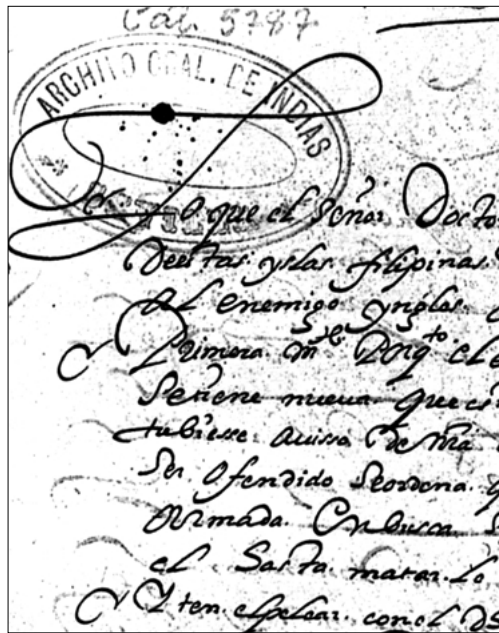 Cat. 5787
ARCHIVO GRAL. DE INDIAS
Lo que el Señor Docto
Deestas yslas filipinas
al enemigo yngles
Primera mte Porqto el
Setiene nueva que es
tubiesse avisso De mra
Ser Ofendido Seordena
Armada En busca
el Hasta matar lo
Yten elpelear con el D